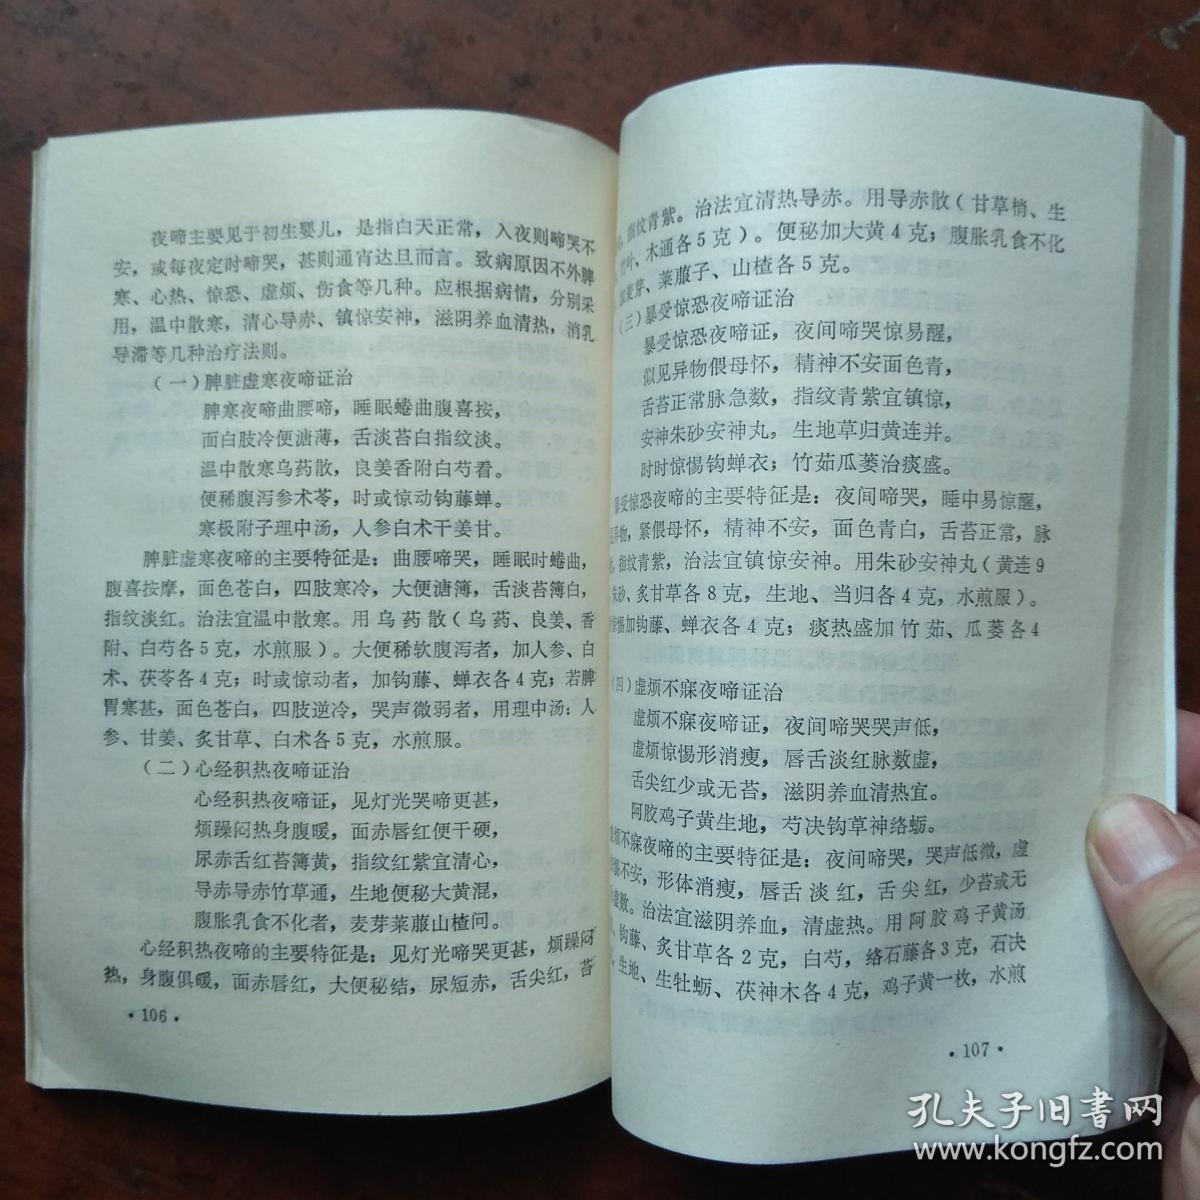 夜啼主要见于初生婴儿，是指白天正常，入夜则啼哭不
安，或每夜定时啼哭，甚则通宵达旦而言。致病原因不外脾
寒、心热、惊恐、虚烦、伤食等几种。应根据病情，分别采
用，温中散寒，清心导赤、镇惊安神，滋阴养血清热，消乳
导滞等几种治疗法则。
（一）脾脏虚寒夜啼证治
脾寒夜啼曲腰啼，睡眠蜷曲腹喜按，
面白肢冷便溏薄，舌淡苔白指纹淡。
温中散寒乌药散，良姜香附白芍看。
便稀腹泻参术苓，时或惊动钩藤蝉。
寒极附子理中汤，人参白术干姜甘。
脾脏虚寒夜啼的主要特征是：曲腰啼哭，睡眠时蜷曲，
腹喜按摩，面色苍白，四肢寒冷，大便溏簿，舌淡苔簿白，
指纹淡红。治法宜温中散寒。用乌药散（乌药、良姜、香
附、白芍各5克，水煎服）。大便稀软腹泻者，加人参、白
术、茯苓各4克；时或惊动者，加钩藤、蝉衣各4克；若脾
胃寒甚，面色苍白，四肢逆冷，哭声微弱者，用理中汤：人
参、甘姜、炙甘草、白术各5克，水煎服。
（二）心经积热夜啼证治
心经积热夜啼证，见灯光哭啼更甚，
烦躁闷热身腹暖，面赤唇红便干硬，
尿赤舌红苔簿黄，指纹红紫宜清心，
导赤导赤竹草通，生地便秘大黄混，
腹胀乳食不化者，麦芽莱菔山楂问。
心经积热夜啼的主要特征是：见灯光啼哭更甚，烦躁闷
热，身腹俱暖，面赤唇红，大便秘结，尿短赤，舌尖红，苔
·106·
指纹青紫。治法宜清热导赤。用导赤散（甘草梢、生
竹叶、木通各5克）。便秘加大黄4克；腹胀乳食不化
加麦芽、莱菔子、山楂各5克。
（三）暴受惊恐夜啼证治
暴受惊恐夜啼证，夜间啼哭惊易醒，
似见异物偎母怀，精神不安面色青，
舌苔正常脉急数，指纹青紫宜镇惊，
安神朱砂安神丸，生地草归黄连并。
时时惊惕钩蝉衣；竹茹瓜蒌治痰盛。
暴受惊恐夜啼的主要特征是：夜间啼哭，睡中易惊醒，
异物，紧偎母怀，精神不安，面色青白，舌苔正常，脉
，指纹青紫，治法宜镇惊安神。用朱砂安神丸（黄连9
朱砂、炙甘草各8克，生地、当归各4克，水煎服）。
惊惕加钩藤、蝉衣各4克；痰热盛加竹茹、瓜蒌各4
（四）虚烦不寐夜啼证治
虚烦不寐夜啼证，夜间啼哭哭声低，
虚烦惊惕形消瘦，唇舌淡红脉数虚，
舌尖红少或无苔，滋阴养血清热宜。
阿胶鸡子黄生地，芍决钩草神络蛎。
虚烦不寐夜啼的主要特征是：夜间啼哭，哭声低微，虚
惕不安，形体消瘦，唇舌淡红，舌尖红，少苔或无
虚数。治法宜滋阴养血，清虚热。用阿胶鸡子黄汤
、钩藤、炙甘草各2克，白芍，络石藤各3克，石决
、生地、生牡蛎、茯神木各4克，鸡子黄一枚，水煎
·107·
孔夫子旧书网
www.kongfz.com